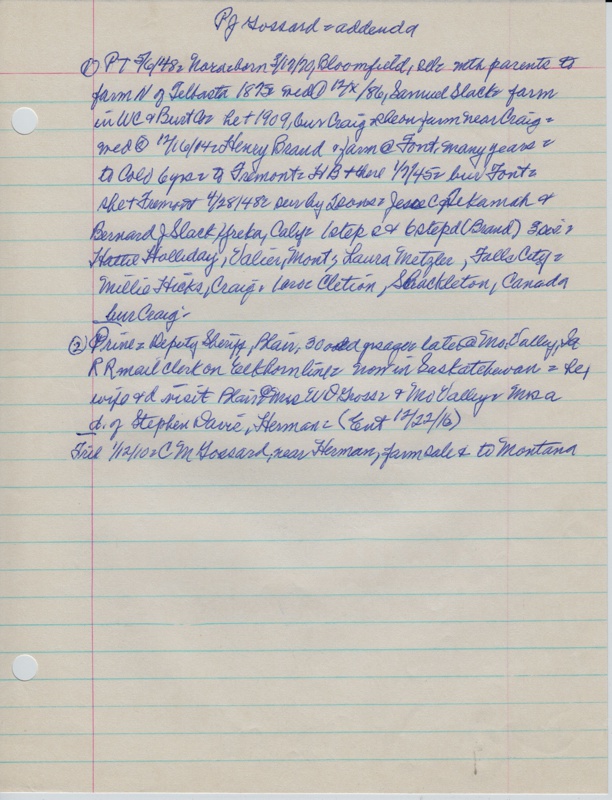 PJ Gossard = addenda
① PT 5/6/48 = Nora = born 3/17/70, Bloomfield, = with parents to
farm N of Tekamah 187 = wed ① 12/x/86, Samuel Slack = farm
in WC & Burt Co = he + 1909, bur Craig = on farm near Craig =
wed ② 12/16/14 = Henry Brand = farm @ Font, many years =
to Cold 6 yrs = to Fremont = HB + there 1/7/45 = bur Font =
she + Fremont 4/28/48 = sur by 2 sons = Jesse C, Tekamah &
Bernard J Slack, Yreka, Caly = 1 step s & 6 step d (Brand) 3 sis =
Hattie Holladay, Valier, Mont; Laura Metzler, Falls City =
Millie Hicks, Craig = 1 bro = Cletion, Shackleton, Canada
bur Craig =
② Prine = Deputy Sheriff, Blair, 30 odd yrs ago = later @ Mo. Valley, Ia
R R mail clerk on Elkhorn line = now in Saskatchewan = he,
wife & d visit Blair @ Mrs W D Gross & Mo Valley = Mrs a
d. of Stephen Davis, Herman = (Ent 12/22/16)
Trib 1/12/10 = C M Gossard, near Herman, farm sale & to Montana